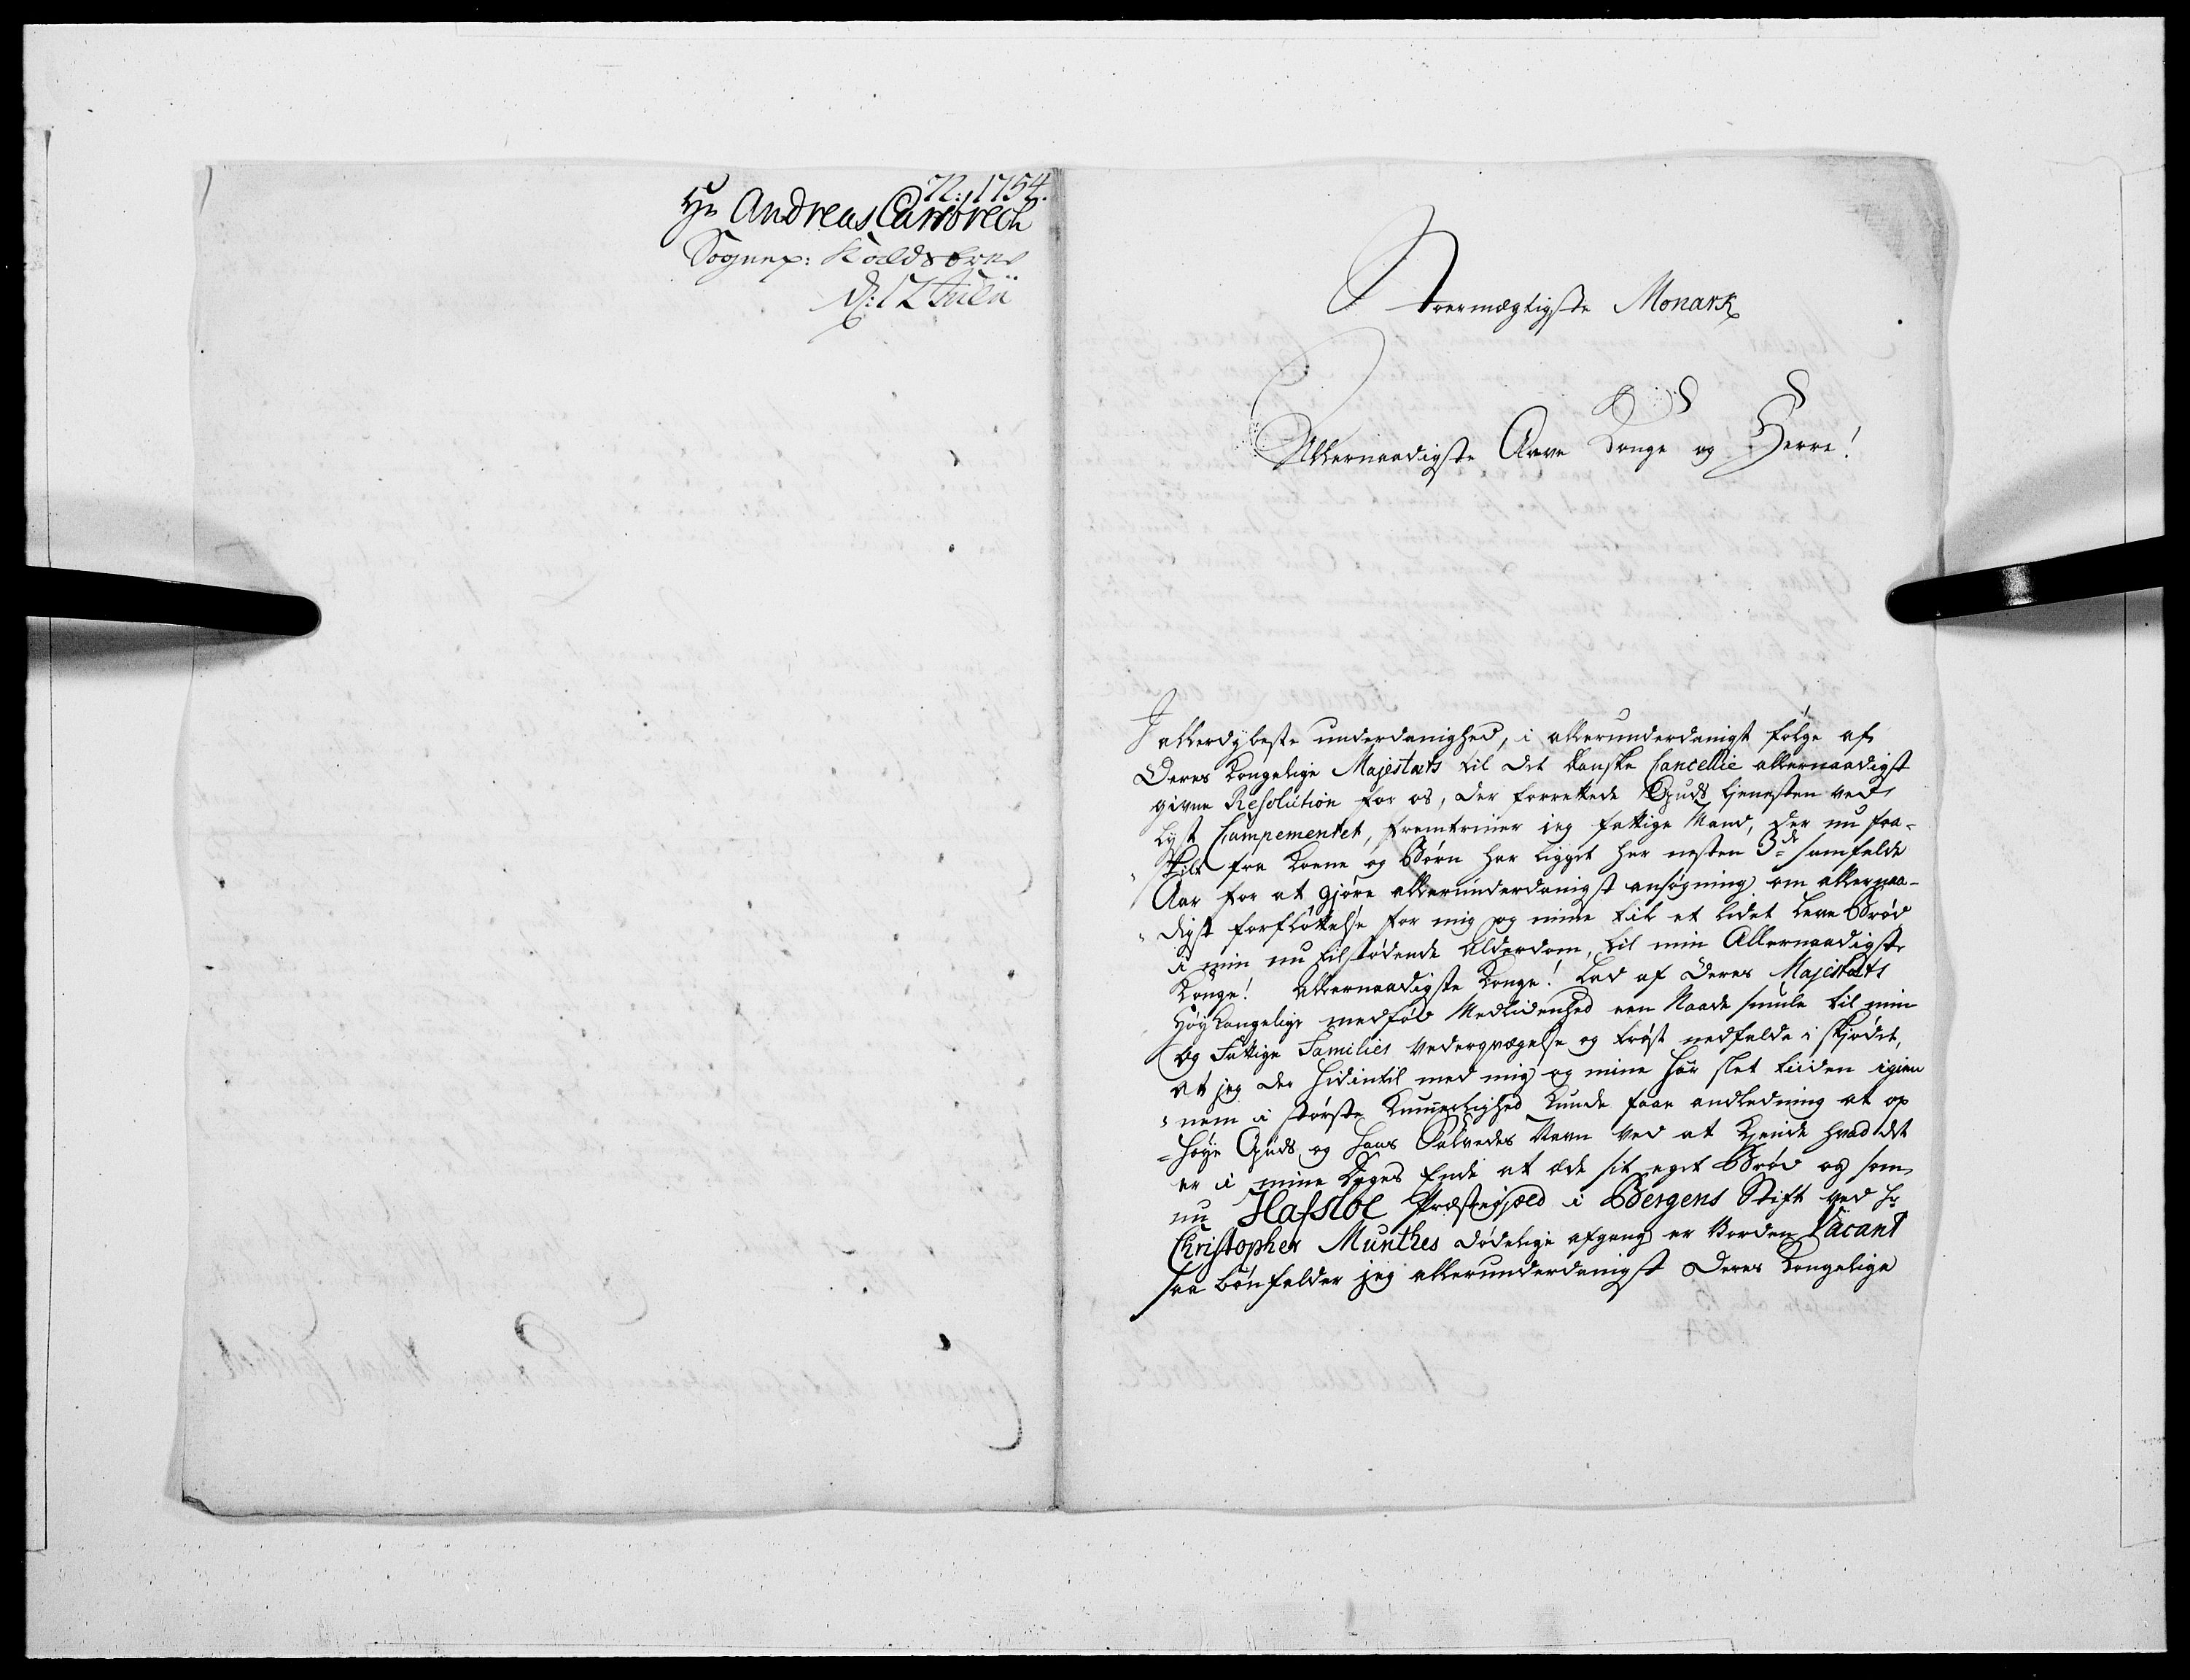 72: 1754.
Hr Andreas Carsbrech
Sognep: Kaldsbrev
d: 12 Julii
Stormægtigste Monark
Allernaadigste Arve Konge og Herre!
I allerdybeste underdanighed, i allerunderdanigst følge af
Deres Kongelige Majestæts til det danske Cancellie allernaadigst
givne Resolution for os, der forrettede Guds tjenesten ved
Lyst Campementet, fremtriner jeg fattige Mand, der nu fra-
skilt fra Kone og Børn har ligget her nesten 3de samfelde
Aar for at gjøre allerunderdanigst ansøgning om allernaa-
digst forfløttelse for mig og mine til et lidet leve Brød
i min nu tilstødende alderdom, til min Allernaadigste
Konge! Allernaadigste Konge! Lad af Deres Majestæts
Høy Kongelige medfød Medlidenhed een Naade smule til min
og Fattige Families vederqvægelse og trøst nedfalde i skjødet,
at jeg der hidintil med mig og mine har slet tiiden igien
nem i største Kummerlighed kunde faae andledning at op
høye Guds og hans Salvedes Navn ved at kjende hvad det
er i mine Dages Ende at æde sit eget Brød og som
nu Hafsloe Præstegjæld i Bergens Stift ved Hr
Christopher Munthes dødelige afgang er vorden Vacant
saa bønfalder jeg allerunderdanigst Deres Kongelige